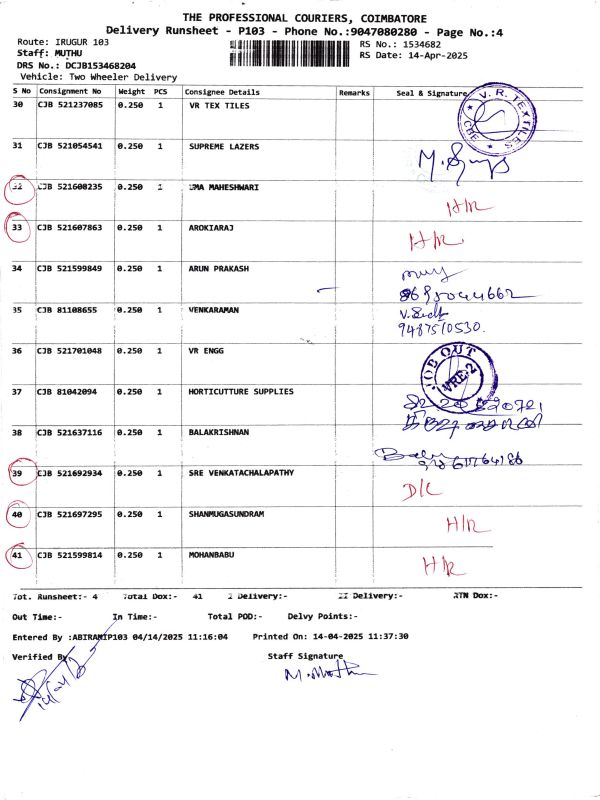 THE PROFESSIONAL COURIERS, COIMBATORE
Delivery Runsheet - P103 - Phone No.:9047080280 - Page No.:4
Route: IRUGUR 103
RS No.: 1534682
Staff: MUTHU
RS Date: 14-Apr-2025
DRS No.: DCJB153468204
Vehicle: Two Wheeler Delivery
S No Consignment No Weight PCS Consignee Details Remarks Seal & Signature
30 CJB 521237085 0.250 1 VR TEX TILES V. R. TEXTILES CBE
31 CJB 521054541 0.250 1 SUPREME LAZERS
32 CJB 521608235 0.250 1 UMA MAHESHWARI H/R
33 CJB 521607863 0.250 1 AROKIARAJ H/R
34 CJB 521599849 0.250 1 ARUN PRAKASH
35 CJB 81108655 0.250 1 VENKARAMAN
9487510530.
36 CJB 521701048 0.250 1 VR ENGG JOB OUT VRE-2
37 CJB 81042094 0.250 1 HORTICUTTURE SUPPLIES
38 CJB 521637116 0.250 1 BALAKRISHNAN
39 CJB 521692934 0.250 1 SRE VENKATACHALAPATHY D/L
40 CJB 521697295 0.250 1 SHANMUGASUNDRAM H/R
41 CJB 521599814 0.250 1 MOHANBABU H/R
Tot. Runsheet:- 4 Total Dox:- 41 I Delivery:- II Delivery:- RTN Dox:-
Out Time:- In Time:- Total POD:- Delvy Points:-
Entered By :ABIRAMIP103 04/14/2025 11:16:04 Printed On: 14-04-2025 11:37:30
Verified By Staff Signature